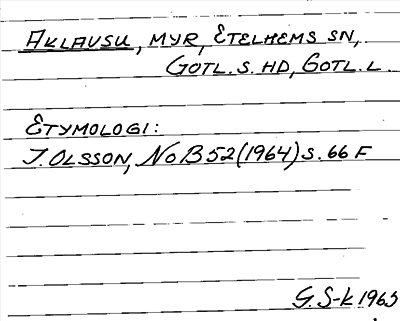 AKLAUSU, MYR, ETELHEMS SN,
GOTL. S. HD, GOTL. L.
ETYMOLOGI:
I. OLSSON, NoB 52 (1964) s. 66 F
G. S-k 1965